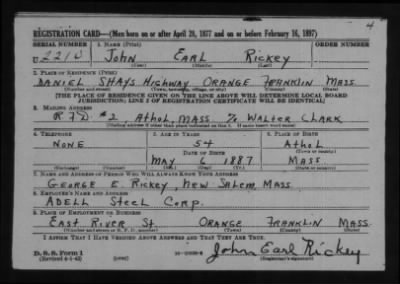 4
REGISTRATION CARD—(Men born on or after April 28, 1877 and on or before February 16, 1897)
SERIAL NUMBER 1. NAME (Print) ORDER NUMBER
U 2210 John Earl Rickey
(First) (Middle) (Last)
2. PLACE OF RESIDENCE (Print)
DANIEL SHAYS HIGHWAY ORANGE FRANKLIN MASS.
(Number and street) (Town, township, village, or city) (County) (State)
[THE PLACE OF RESIDENCE GIVEN ON THE LINE ABOVE WILL DETERMINE LOCAL BOARD
JURISDICTION; LINE 2 OF REGISTRATION CERTIFICATE WILL BE IDENTICAL]
3. MAILING ADDRESS
R.F.D #2 Athol, MASS % WALTER CLARK
[Mailing address if other than place indicated on line 2. If same insert word same]
4. TELEPHONE 5. AGE IN YEARS 6. PLACE OF BIRTH
NONE 54 Athol
DATE OF BIRTH (Town or county)
MAY 6 1887 MASS
(Exchange) (Number) (Mo.) (Day) (Yr.) (State or country)
7. NAME AND ADDRESS OF PERSON WHO WILL ALWAYS KNOW YOUR ADDRESS
GEORGE E. RICKEY, NEW SALEM MASS
8. EMPLOYER'S NAME AND ADDRESS
ADELL STEEL CORP.
9. PLACE OF EMPLOYMENT OR BUSINESS
EAST RIVER St. ORANGE FRANKLIN MASS
(Number and street or R. F. D. number) (Town) (County) (State)
I AFFIRM THAT I HAVE VERIFIED ABOVE ANSWERS AND THAT THEY ARE TRUE.
D. S. S. Form 1
(Revised 4-1-42) (over) John Earl Rickey
(Registrant's signature)